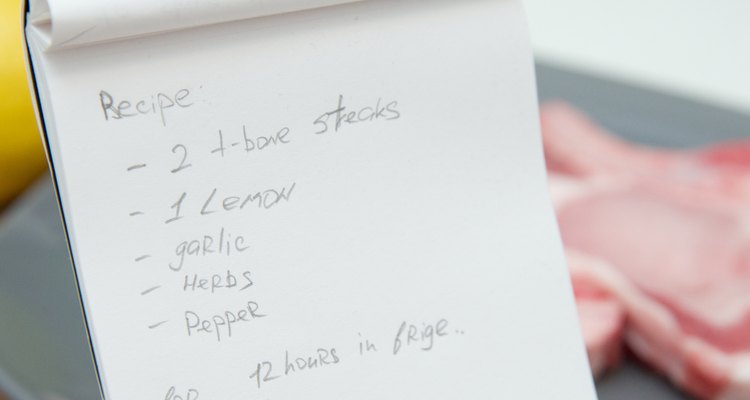 Recipe:
- 2 t-bone steaks
- 1 Lemon
- garlic
- Herbs
- Pepper
for 12 hours in frige..